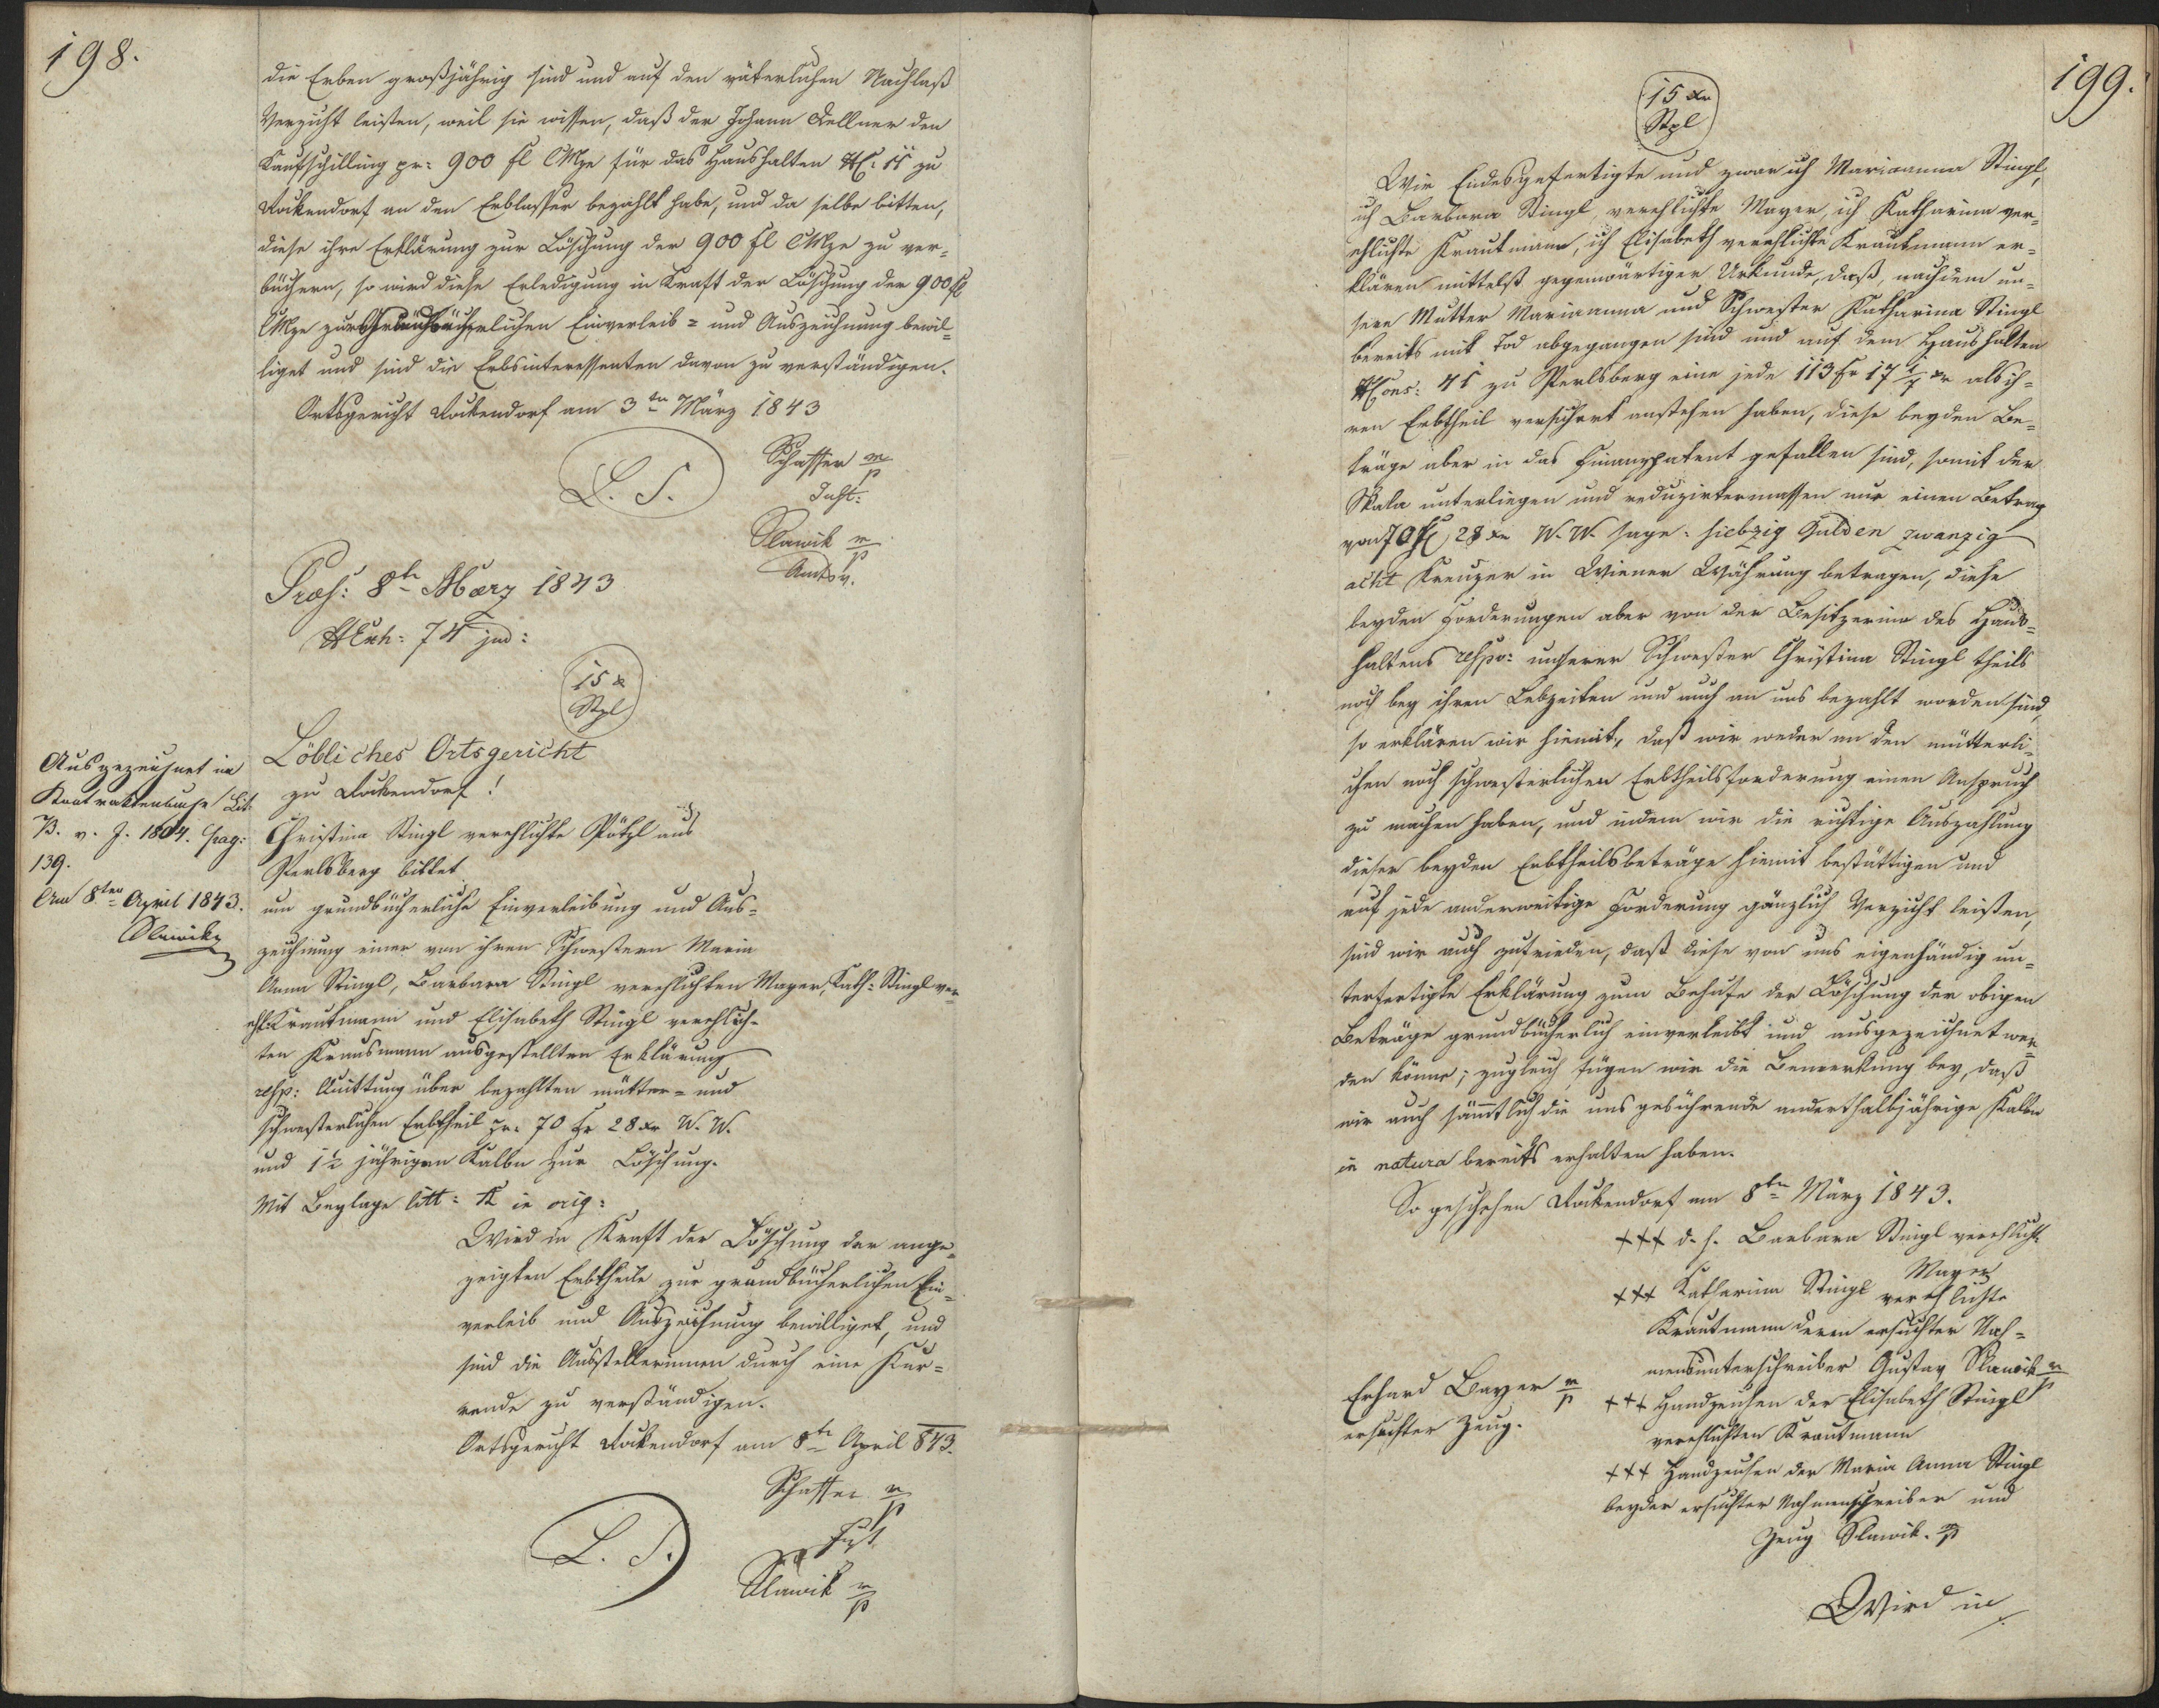 198.
die Erben großjährig sind und auf den väterlichen Nachlaß
Verzicht leisten, weil sie wissen, daß der Johann Kellner den
Kaufschilling pr: 900 fl CMze für das Haushalten NC: 11 zu
Rockendorf an den Erblasser bezahlt habe, und da selbe bitten,
diese ihre Erklärung zur Löschung der 900 fl CMze zu ver-
büchern, so wird diese Erledigung in Kraft der Löschung der 900 fl
CMze zur grundbücherlichen Einverleib= und Auszeichnung bewil-
liget und sind die Erbsinteressenten davon zu verständigen.
Ortsgericht Rockendorf am 3ten März 1843
L. S.
Schaffer m/p
Just:
Slawik m/p
Amtsv.
Præs: 8ten März 1843
NExh: 74 jud:
15 x
Stpl
Löbliches Ortsgericht
zu Rockendorf!
Ausgezeichnet im
Kontraktenbuche Lit.
B. v. J. 1804. pag:
139.
Am 8ten April 1843.
Slawik
Christina Stingl verehlichte Pötzl aus
Perlsberg bittet
um grundbücherliche Einverleibung und Aus-
zeichnung einer von ihren Schwestern Maria
Anna Stingl, Barbara Stingl verehlichten Mayer, Kath: Stingl ver-
ehl: Krautmann und Elisabeth Stingl verehlich-
ten Krausmann ausgestellten Erklärung
resp: Quittung über bezahlten mütter= und
schwesterlichen Erbtheil pr: 70 fr 28 xr W. W.
und 1½ jährigen Kalbn zur Löschung.
Mit Beylage litt: A in orig:
Wird in Kraft der Löschung der ange-
zeigten Erbtheile zur grundbücherlichen Ein-
verleib und Auszeichnung bewilliget, und
sind die Ausstellerinnen durch eine Kur-
rende zu verständigen.
Ortsgericht Rockendorf am 8ten April 843.
Schaffer m/p
Just
L. S.
Slawik m/p
199.
15 xr
Stpl
Wir Endesgefertigte und zwar ich Marianna Stingl,
ich Barbara Stingl, verehlichte Mayer, ich Katharina ver-
ehlichte Krautmann, ich Elisabeth verehlichte Krautmann er-
klären mittelst gegenwärtiger Urkunde, daß, nachdem un-
sere Mutter Marianna und Schwester Katharina Stingl
bereits mit Tod abgegangen sind und auf dem Haushalten
NCons: 41 zu Perlsberg eine jede 113 fr 17 ¼ xr als ih-
ren Erbtheil versichert anstehen haben, diese beyden Be-
träge aber in das Finanzpatent gefallen sind, somit der
Skala unterliegen und reduzirtermassen nur einen Betrag
von 70 fl 28 xr W. W. sage: siebzig Gulden zwanzig
acht Kreuzer in Wiener Währung betragen, diese
beyden Forderungen aber von der Besitzerinn des Haus-
haltens respv: unserer Schwester Christina Stingl theils
noch bey ihren Lebzeiten und auch an uns bezahlt worden sind,
so erklären wir hiemit, daß wir weder an den mütterli-
chen noch schwesterlichen Erbtheilsforderung einen Anspruch
zu machen haben, und indem wir die richtige Auszahlung
dieser beyden Erbtheilsbeträge hiemit bestättigen und
auf jede anderweitige Forderung gänzlich Verzicht leisten,
sind wir auch zufrieden, daß diese von uns eigenhändig un-
terfertigte Erklärung zum Behufe der Löschung der obigen
Beträge grundbücherlich einverleibt und ausgezeichnet wer-
den könne; zugleich fügen wir die Bemerkung bey, daß
wir auch sämtlich die uns gebührende anderthalbjährige Kalbn
in natura bereits erhalten haben.
So geschehen Rockendorf am 8ten März 1843.
+++ d. h. Barbara Stingl verehlicht
Mayer
+++ Katharina Stingl verehlichte
Krautmann deren ersuchter Nah-
mensunterschreiber Gustav Slawik m/p
Erhard Bayer m/p
ersuchter Zeug.
+++ Handzeichen der Elisabeth Stingl
verehlichten Krautmann
+++ Handzeichen der Maria Anna Stingl
beyder ersuchter Nahmenschreiber und
Zeug Slawik. m/p
Wird in